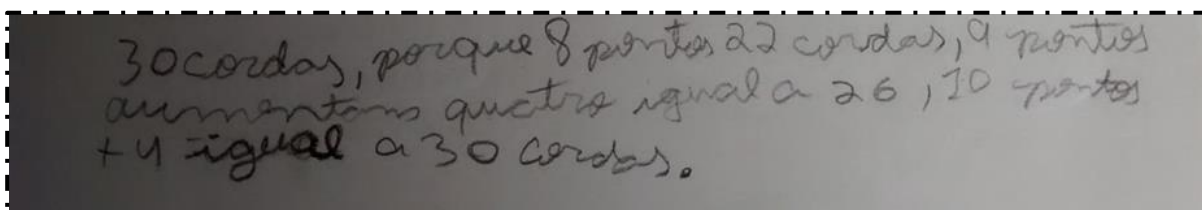 30 cordas, porque 8 pontos 22 cordas, 9 pontos
aumentam quatro igual a 26, 10 pontos
+4 igual a 30 cordas.